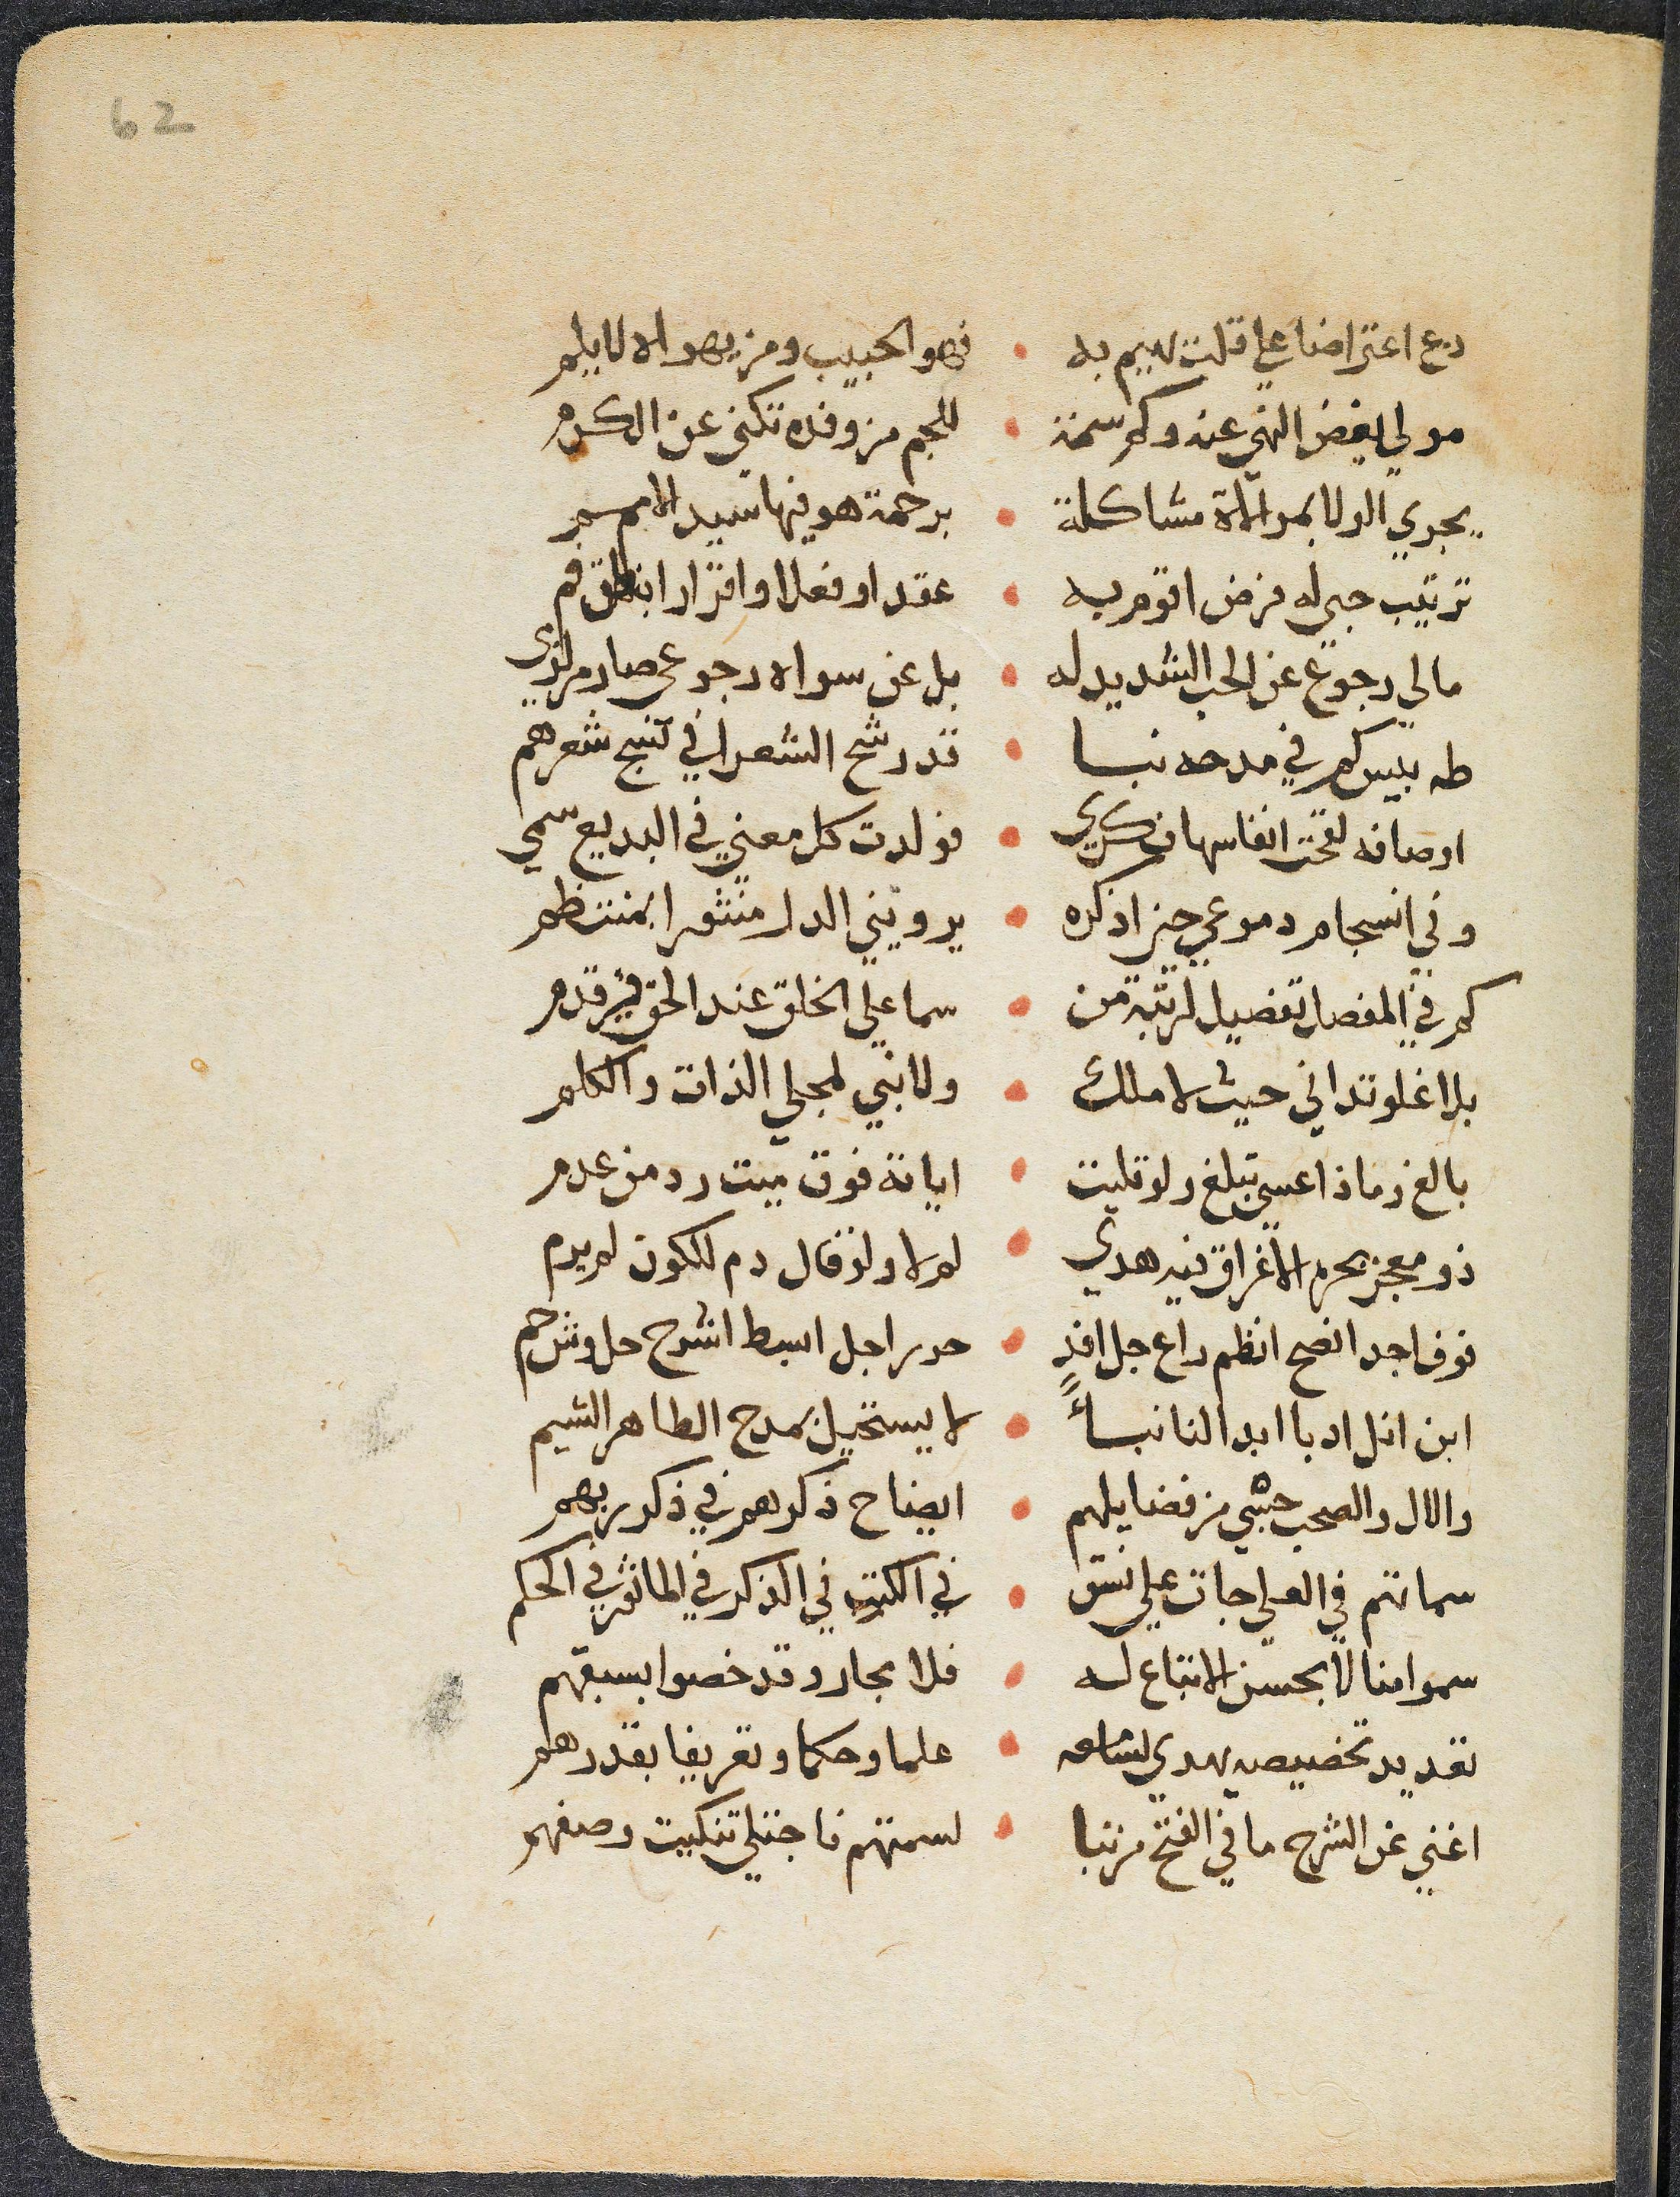 62
دع اعتراضا علي قلت لهيم به • فهو الحبيب ومن يهواه لا يلم
مولي يغض النهي عنه وكم سمة • للجم من وفده تكني عن الكرم
يجري الولا بموالاة مشاكلة • برحمة هو فيها سيد الامم
ترتيب حبي له فرض اقوم به • عقدا وفعلا واقرارا بنطق فم
مالي رجوع عن الحب الشديد له • بل عن سواه رجوعي صار من
طه بييس كم في مدحه نبا • قد رشح الشعرا في نسج شعرهم
اوصافه لقحت انفاسها فكري • فولدت كل معني في البديع سمي
وفي انسجام دموعي حين اذكره • يرويني الدر منثورا بمنتظم
كم في المفصل تفضيل لرتبة من • سما علي الخلق عند الحق في قدم
بلا غلو تداني حيث لا ملك • ولا نبي لمجلي الذات والكلم
بالغ وماذا عسي تبلغ ولو تليت • اياته فوق ميت رد من عدم
ذو معجز بحره الاغراق فيه هدي • لولاه ولو قال دم للكون لم يدم
نوف اجد افصح انظم راع جل افد • حرر اجل ابسط اشرح حل وش حم
ابن انل ادبا ابد النا نبأ • لا يستحيل بمدح الطاهر الشيم
والال والصحب حبي من فضايلهم • ايضاح ذكرهم في ذكر ربهم
سماتهم في العلي جات علي نسق • في الكتب في الذكر في الماثور في الحكم
سموا منالا بحسن الاتباع له • فلا يجاروا قد خصوا بسبقهم
تعديد تخصيص يهدي لسامعه • علما وحكما وتعريفا بقدرهم
اغني عن الشرح ما في الفتح من نبا • لسمتهم فاجتلي تنكيت وصفهم